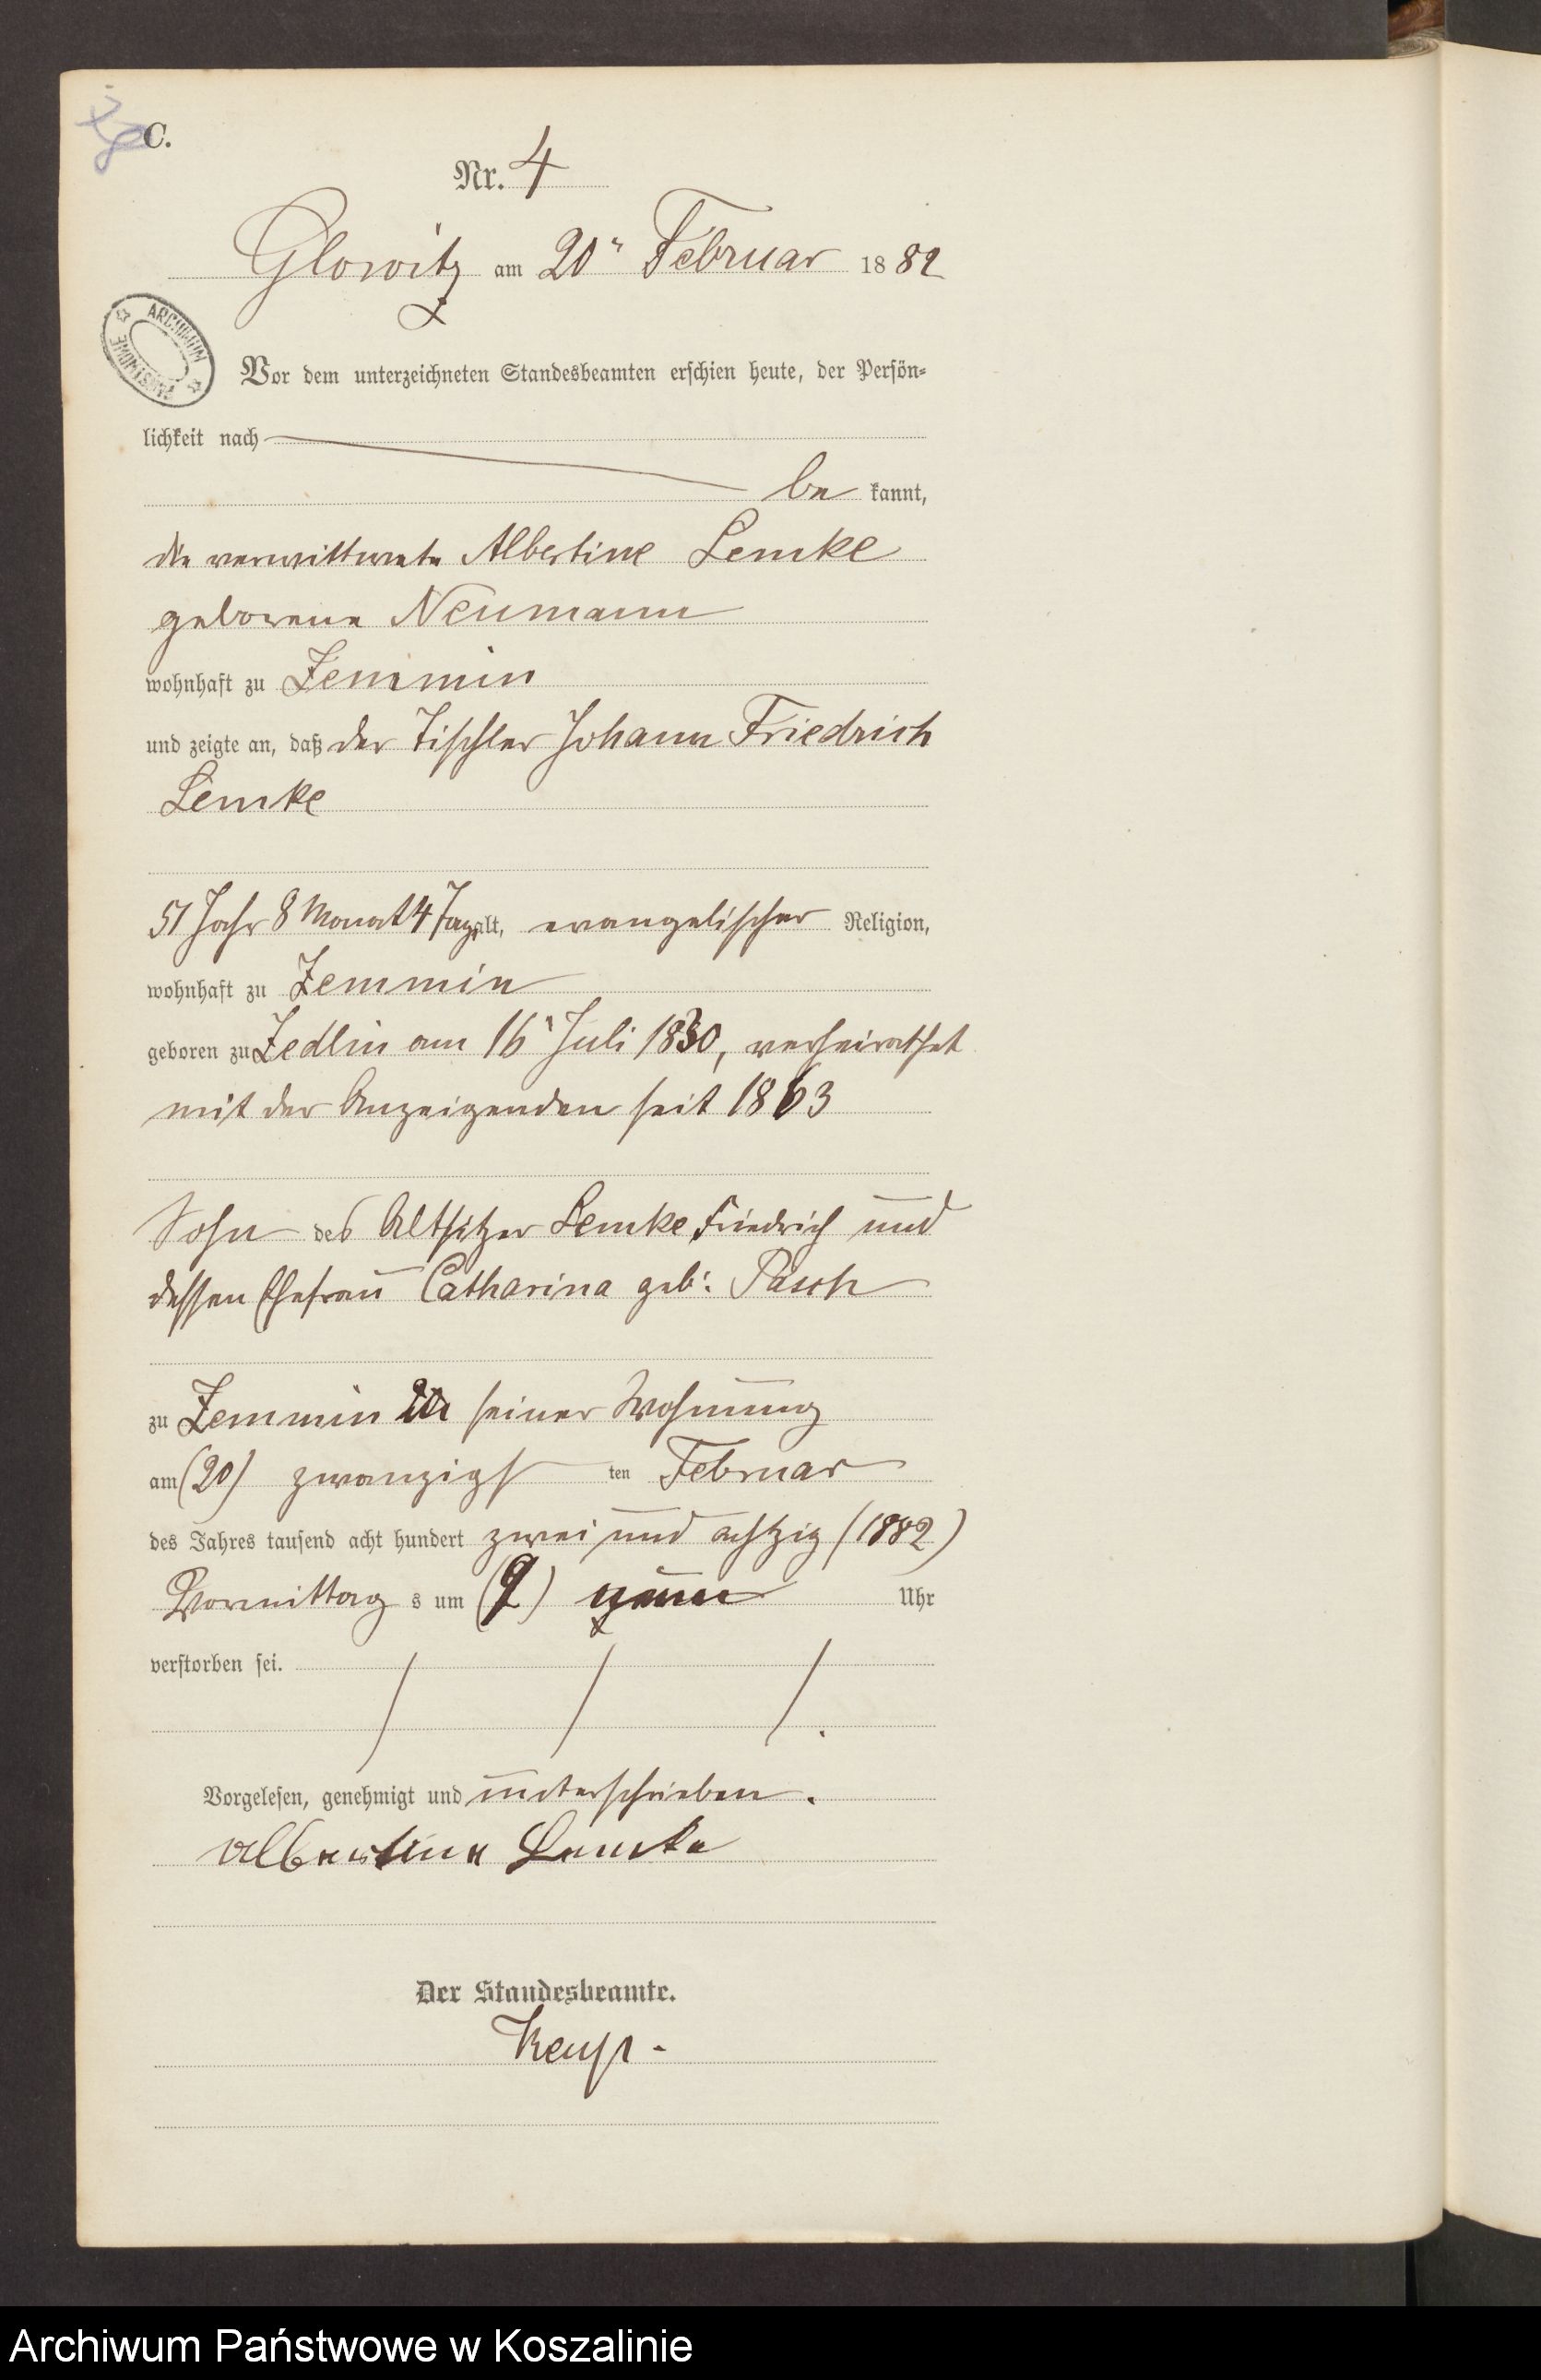 C.
Nr. 4
Glowitz am 20n Februar 1882
ARCHIWUM PAŃSTWOWE
Vor dem unterzeichneten Standesbeamten erschien heute, der Persön-
lichkeit nach
be kannt,
die verwittwete Albertine Lemke
geborene Neumann
wohnhaft zu Zemmin
und zeigte an, daß der Tischler Johann Friedrich
Lemke
51 Jahr 8 Monat 4 Tage alt, evangelischer Religion,
wohnhaft zu Zemmin
geboren zu Zedlin am 16n Juli 1830, verheirathet
mit der Anzeigenden seit 1863
Sohn des Altsitzer Lemke Friedrich und
dessen Ehefrau Catharina geb: Pasch
zu Zemmin in seiner Wohnung
am (20) zwanzigs ten Februar
des Jahres tausend acht hundert zwei und achtzig (1882)
Vormittag s um (9) neun Uhr
verstorben sei.
Vorgelesen, genehmigt und unterschrieben.
Albertine Lemke
Der Standesbeamte.
Archiwum Państwowe w Koszalinie